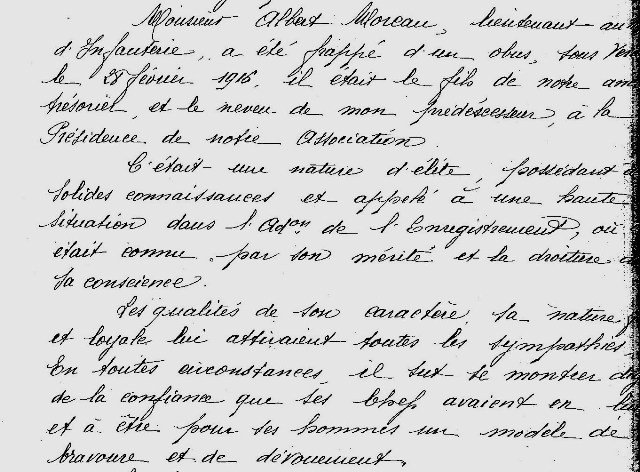 Monsieur Albert Moreau, lieutenant au
d'Infanterie, a été frappé d'un obus, sous Ver
le 28 février 1916, il était le fils de notre am
trésorier, et le neveu de mon prédéscesseur, à la
Présidence de notre Association.
C'était une nature d'élite, possédant d
solides connaissances et appelé à une haute
situation dans l'Adon de l'Enregistrement, où
était connu par son mérité et la droiture d
sa conscience.
Les qualités de son caractère, sa nature
et loyale lui attiraient toutes les sympathies
En toutes circonstances, il sut se montrer di
de la confiance que ses Chefs avaient en lu
et à être pour ses hommes un modèle de
bravoure et de dévouement.